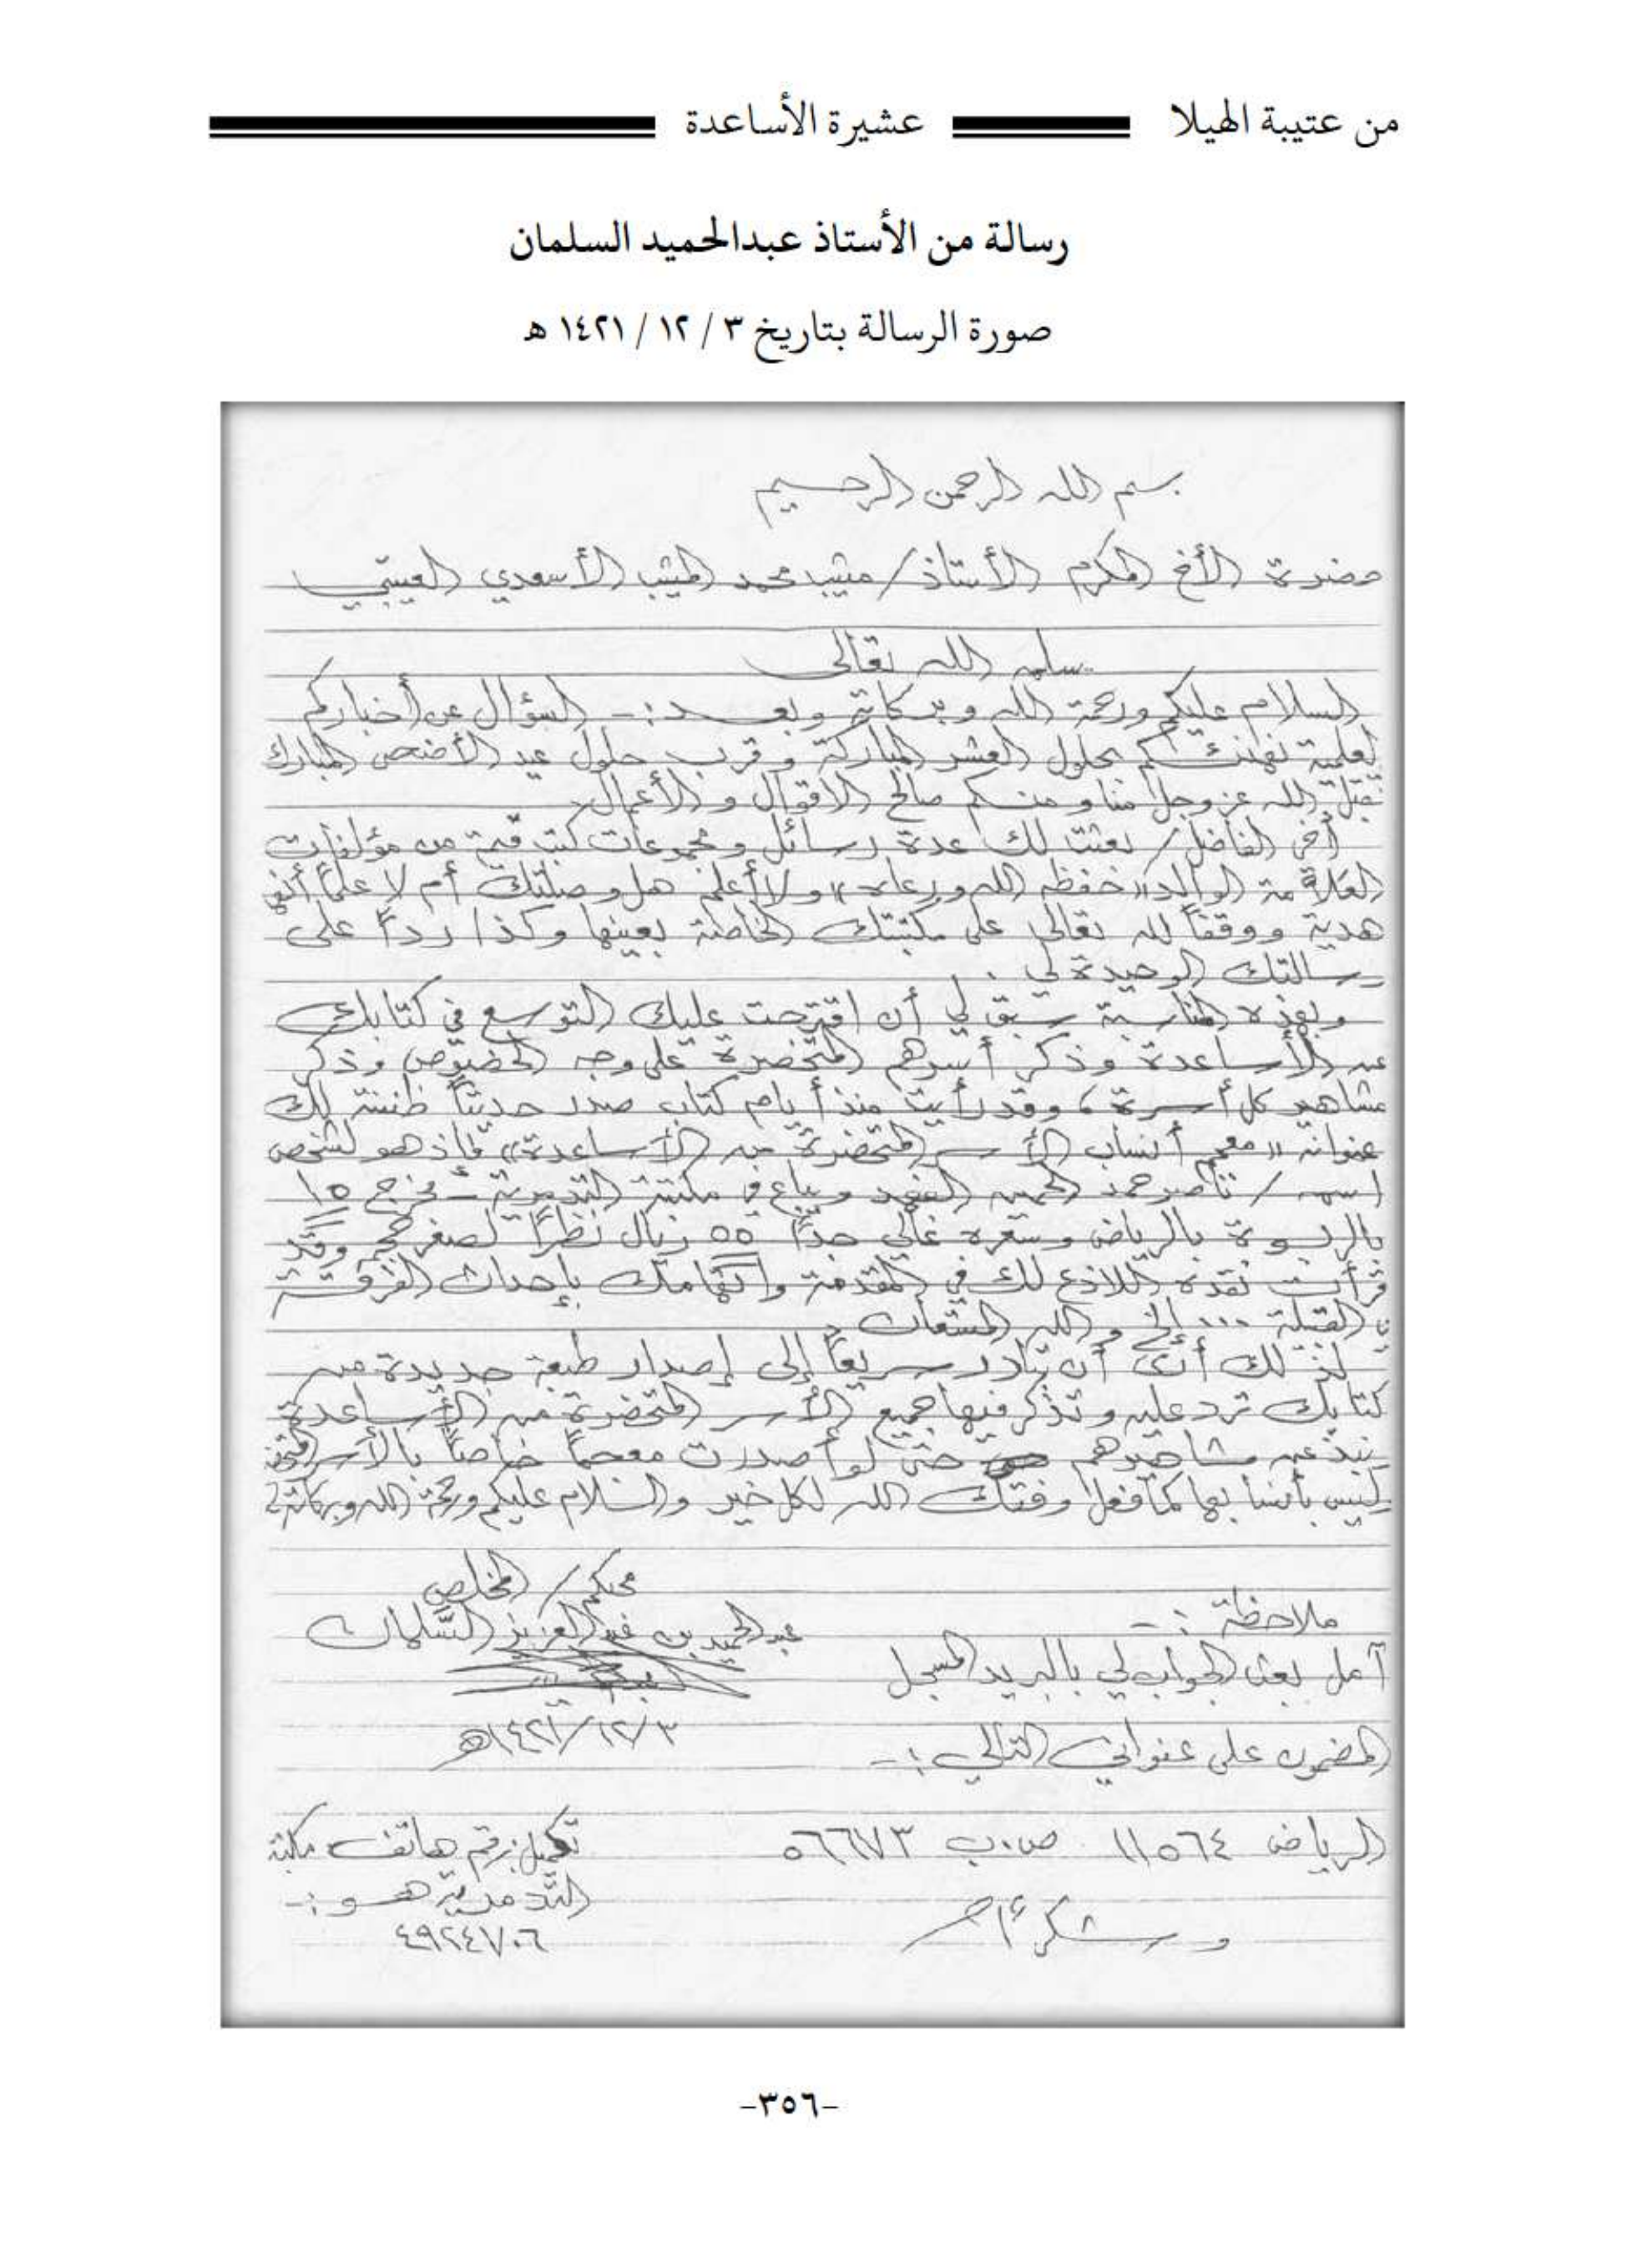 من عتيبة الهيلا عشيرة الأساعدة
رسالة من الأستاذ عبدالحميد السلمان
صورة الرسالة بتاريخ ٣ / ١٢ / ١٤٢١ هـ
بسم الله الرحمن الرحيم
حضرة الأخ المكرم الأستاذ/ محمد الأسعدي العتيبي
سلمه الله تعالى
السلام عليكم ورحمة الله وبركاته وبعد :- السؤال عن أخباركم
بحلول العشر المباركة وقرب حلول عيد الأضحى المبارك
تقبل الله عز وجل منا ومنكم صالح الأقوال والأعمال.
أخي الفاضل/ بعثت لك عدة رسائل ومجموعات كتب قيمة من مؤلفات
العلامة الوالد «حفظه الله ورعاه» ولا أعلم هل وصلتك أم لا علماً أنها
هدية ووقفاً لله تعالى على مكتبتك الخاصة بعينها وكذا رداً على
رسالتك الوحيدة لي .
وبهذه المناسبة سبق لي أن اقترحت عليك التوسع في كتابك
عن الأساعدة وذكر أسرهم المتحضرة على وجه الخصوص وذكر
مشاهير كل أسرة، وقد رأيت منذ أيام كتاب صدر حديثاً ظننته لك
عنوانه «معجم أنساب الأسر المتحضرة من الأساعدة» فإذ هو لشخص
اسمه / ناصر حمد الفهيد ويباع في مكتبة التدمرية - مخرج ١٥
بالربوة بالرياض وسعره غالي جداً ٥٥ ريال نظراً لصغر حجمه وقد
قرأت نقده اللاذع لك في المقدمة واتهامك بإحداث الفرقة
القبيلة ... إلخ والله المستعان.
لذلك أرى أن تبادر سريعاً إلى إصدار طبعة جديدة من
كتابك ترد عليه وتذكر فيها جميع الأسر المتحضرة من الأساعدة
مشاهيرهم حتى لو أصدرت معجماً خاصاً بالأسر
بأنسابها كما فعل وفقك الله لكل خير والسلام عليكم ورحمة الله وبركاته
محبكم / المخلص
عبدالحميد بن عبدالعزيز السلمان
١٤٢١/١٢/٣هـ
ملاحظة :-
آمل بعث الجواب لي بالبريد المسجل
المضمون على عنواني التالي :-
الرياض ١١٥٦٤ ص.ب ٥٦٦٧٣
وشكراً
رقم هاتف مكتبة
التدمرية هو :-
٤٩٢٤٧٠٦
-٣٥٦-